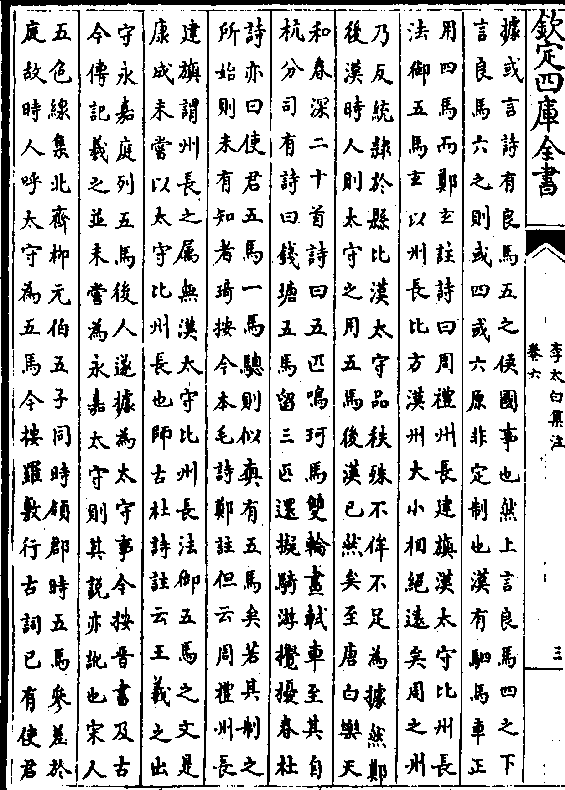 欽定四庫全書
李太白集注
卷六
三
據或言詩有良馬五之侯國事也然上言良馬四之下
言良馬六之則或四或六原非定制也漢有駟馬車正
用四馬而鄭玄註詩曰周禮州長建旟漢太守比州長
法御五馬玄以州長比方漢州大小相絕遠矣周之州
乃反統隸於縣比漢太守品秩殊不侔不足為據然鄭
後漢時人則太守之用五馬後漢已然矣至唐白樂天
和春深二十首詩曰五匹鳴珂馬雙輪畫軾車至其自
杭分司有詩曰錢塘五馬留三匹還擬騎游攪擾春杜
詩亦曰使君五馬一馬驄則似真有五馬矣若其制之
所始則未有知者琦按今本毛詩鄭註但云周禮州長
建旟謂州長之屬無漢太守比州長法御五馬之文是
康成未嘗以太守比州長也師古杜詩註云王羲之出
守永嘉庭列五馬後人遂據為太守事今按晉書及古
今傳記羲之並未嘗為永嘉太守則其説亦訛也宋人
五色線集北齊柳元伯五子同時領郡時五馬參差於
庭故時人呼太守為五馬今按羅敷行古詞已有使君